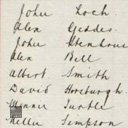 John Loch
Alex Geddes
John Stenhouse
Alex Bell
Albert Smith
David Horsburgh
Minnie Suttle
Nellie Simpson